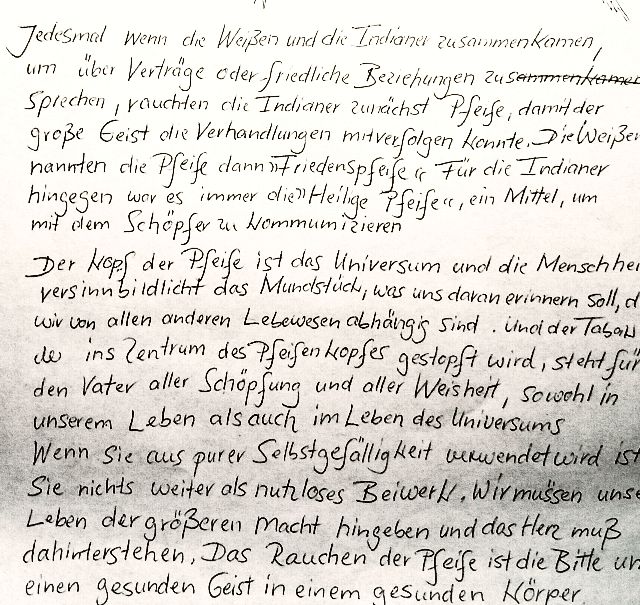 Jedesmal wenn die Weißen und die Indianer zusammenkamen,
um über Verträge oder friedliche Beziehungen zusammenkamen
Sprechen, rauchten die Indianer zunächst Pfeife, damit der
große Geist die Verhandlungen mitverfolgen konnte. Die Weißen
nannten die Pfeife dann »Friedenspfeife« Für die Indianer
hingegen war es immer die »Heilige Pfeife«, ein Mittel, um
mit dem Schöpfer zu kommunizieren
Der Kopf der Pfeife ist das Universum und die Menschhei
versinnbildlicht das Mundstück, was uns daran erinnern soll, d
wir von allen anderen Lebewesen abhängig sind. Und der Tabak
de ins Zentrum des Pfeifenkopfes gestopft wird, steht für
den Vater aller Schöpfung und aller Weisheit, sowohl in
unserem Leben als auch im Leben des Universums
Wenn Sie aus purer Selbstgefälligkeit verwendet wird ist
Sie nichts weiter als nutzloses Beiwerk. Wir müssen unse
Leben der größeren Macht hingeben und das Herz muß
dahinterstehen. Das Rauchen der Pfeife ist die Bitte um
einen gesunden Geist in einem gesunden Körper